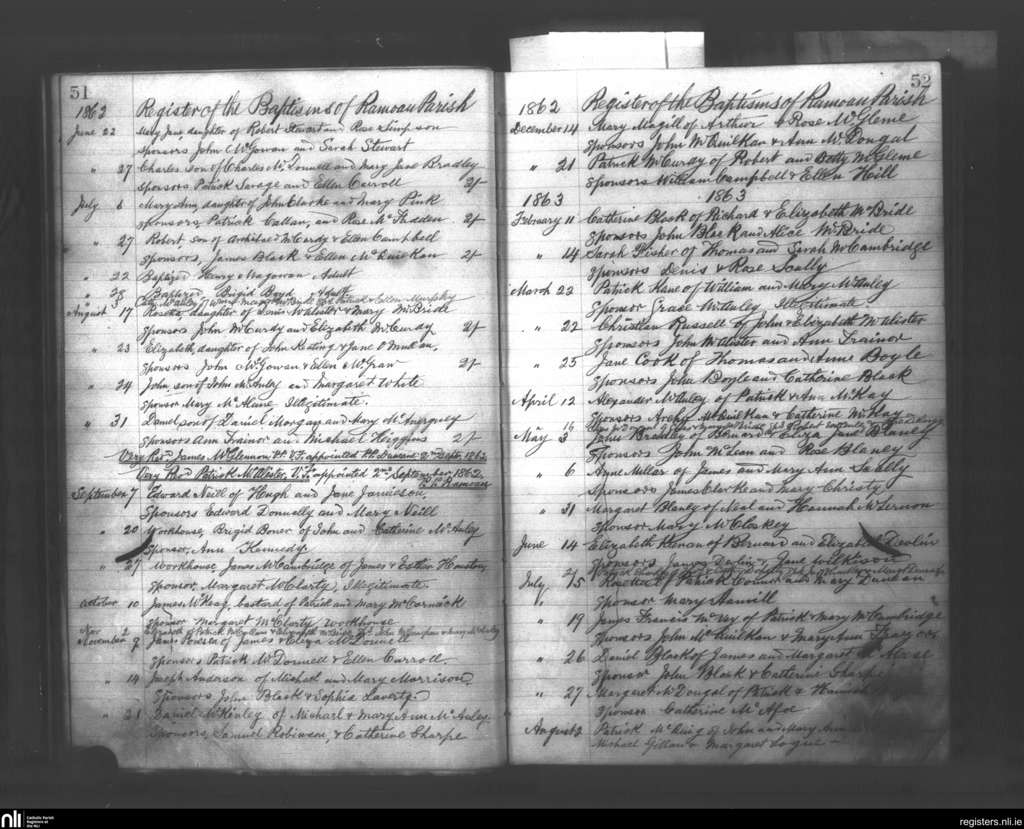 51
1862 Register of the Baptisms of Ramoan Parish
June 22 Mary Jane daughter of Robert Stewart and Rose Simpson
sponsors John McGowan and Sarah Stewart
" 27 Charles son of Charles McDonnell and Mary Jane Bradley
sponsors Patrick Savage and Ellen Carroll 2/-
July 6 Mary Ann, daughter of John Clarke and Mary Pink
sponsors, Patrick Callan, and Rose McFadden 2/-
" 27 Robert, son of Archibald McCurdy & Ellen Campbell
sponsors, James Black & Ellen McQuilkan 2/-
" 22 Baptized Henry Magowan Adult
" 28 Baptized Brigid Boyd Adult
August 17 Rosetta, daughter of Denis McAlister & Mary McBride
sponsors John McCurdy and Elizabeth McCurdy 2/-
" 23 Elizabeth, daughter of John Keating & Jane O'Mullan,
sponsors John McGowan & Ellen McGran 2/-
" 24 John, son of John McAuley and Margaret White
sponsor Mary McAleine Illegitimate.
" 31 Daniel son of Daniel Morgan and Mary McAnerney
sponsors Ann Trainor and Michael Higgins 2/-
Very Revd James McGlennon P.P. V.F. appointed 2nd Septr, 1862
Very Revd Patrick McAlister, V.F. appointed 2nd September, 1862
P.P. Ramoan
September 7 Edward Neill of Hugh and Jane Jamieson,
Sponsors Edward Donnelly and Mary Neill
" 20 Workhouse, Brigid Boner of John and Catherine McAuley
Sponsor, Ann Kennedy
" 27 Workhouse, James McCambridge of James & Esther Houston,
Sponsor, Margaret McClarty, Illegitimate.
October 10 James McKeag, bastard of Patrick and Mary McCormack
Sponsor Margaret McClarty Workhouse
Nov 2 Elizabeth of Patrick McQuillan & Elizabeth McBride
November 9 James Fowler of James & Eliza McDowell
Sponsors Patrick McDonnell & Ellen Carroll.
" 14 Joseph Anderson of Michael and Mary Morrison.
Sponsors John Black & Sophia Laverty.
" 21 Daniel McKinley of Michael & Mary Ann McAuley
Sponsors, Samuel Robinson, & Catherine Sharpe
52
1862 Register of the Baptisms of Ramoan Parish
December 14 Mary Magill of Arthur & Rose McGleme
Sponsors John McQuilkan & Ann McDougal
" 21 Patrick McCurdy of Robert and Betty McGleme
Sponsors William Campbell & Ellen Hill
1863 1863
February 11 Catherine Black of Richard & Elizabeth McBride
Sponsors John Black and Alice McBride
" 14 Sarah Fisher of Thomas and Sarah McCambridge
Sponsors Denis & Rose Scally
March 22 Patrick Kane of William and Mary McAuley
Sponsor Grace McAuley Illegitimate
" 22 Christian Russell of John & Elizabeth McAlister
Sponsors John McAlister and Ann Trainor
" 25 Jane Cook of Thomas and Anne Boyle
Sponsors John Boyle and Catherine Black
April 12 Alexander McAuley of Patrick & Ann McKay
Sponsors Archy McQuilkan & Catherine McKay
May 3 John Bradley of Bernard & Eliza Jane Blaney
Sponsors John McLean and Rose Blaney
" 6 Anne Millar of James and Mary Ann Scally
Sponsors James Clarke and Mary Christy
" 31 Margaret Blaney of Neal and Hannah McLernon
Sponsor Mary McClarkey
June 14 Elizabeth Kenan of Bernard and Elizabeth Devlin
Sponsors James Devlin & Jane Wilkinson
July 5 Rosetta of Patrick Connor and Mary Duncan
" Sponsor Mary Hamill
" 19 James Francis McVey of Patrick & Mary McCambridge
Sponsors John McQuilkan & Mary Ann
" 26 Daniel Black of James and Margaret
Sponsor John Black & Catherine Sharpe
" 27 Margaret McDougal of Patrick & Hannah
Sponsor Catherine McAfee
August 2 Patrick of John and Mary Ann
Michael Gillan & Margaret Logue
nli Catholic Parish Registers at the NLI
registers.nli.ie